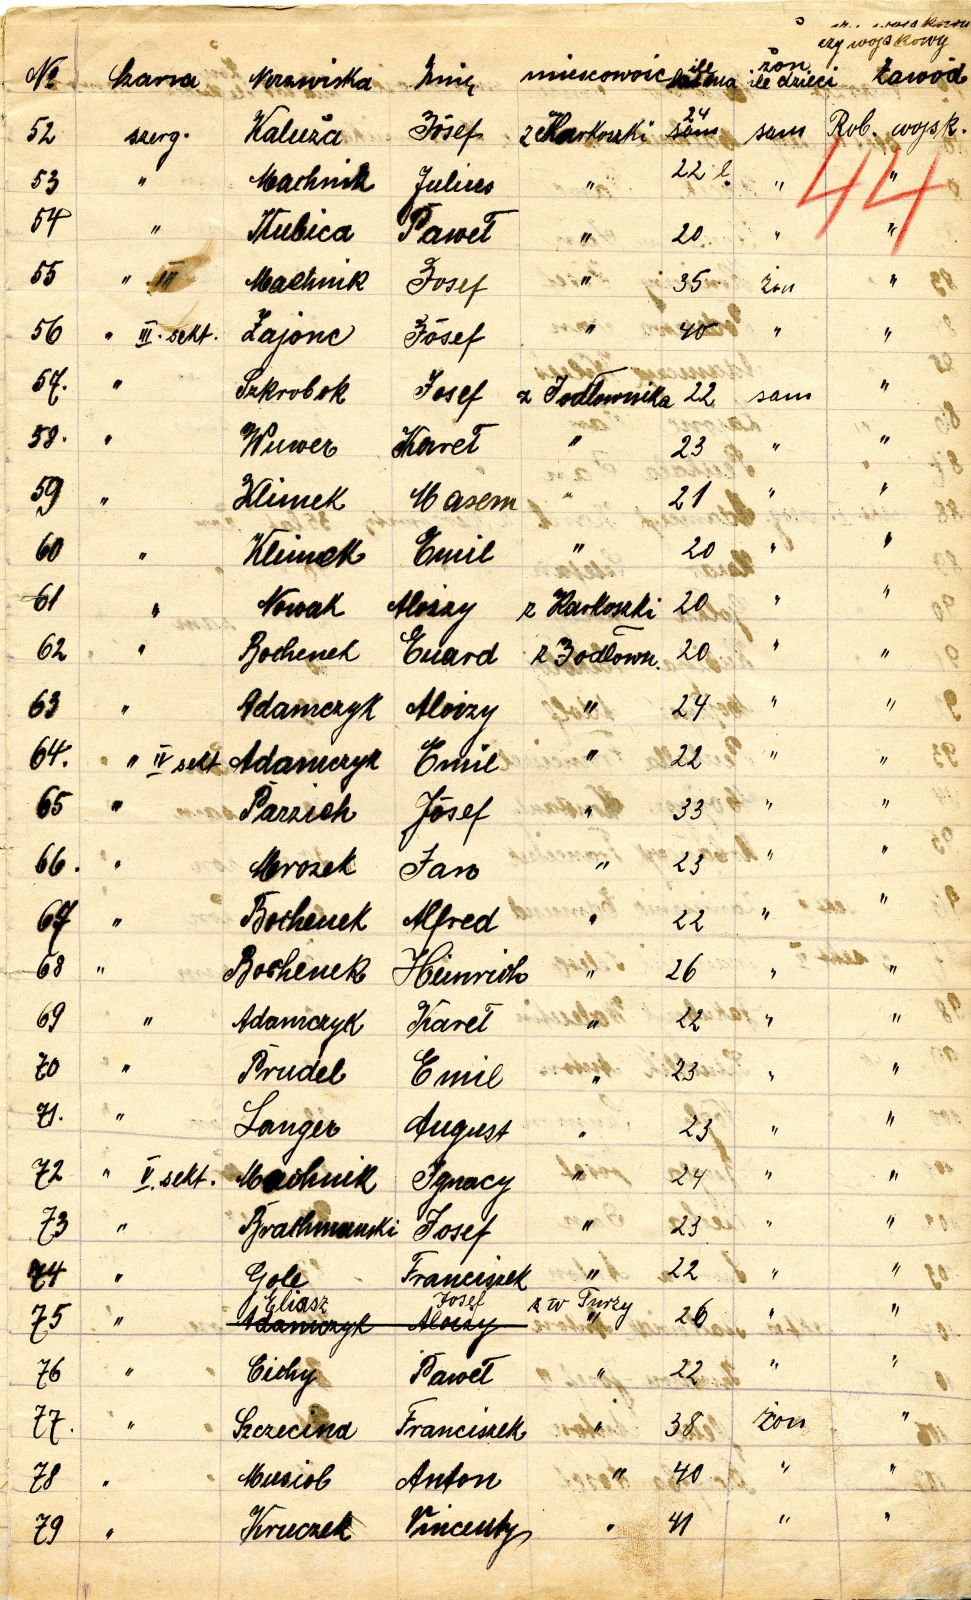 czy wojskowy
№ Szarża Nazwiska Imię miescowość ile lat ma żon. ile dzieci Zawód
52 szerg. Kaluža Józef z Karkoszki 24 sam Rob. wojsk.
53 " Machnik Julius " 22 l. " "
44
54 " Kubica Paweł " 20 " "
55 " III Machnik Josef " 35 żon "
56 " III. sekt. Zajonc Józef " 40 " "
57. " Szkrobok Josef z Jodłownika 22 sam "
58. " Wuwer Kareł " 23 " "
59 " Klimek " 21 " "
60 " Klimek Emil " 20 " "
61 " Nowak Aloizy z Karkoszki 20 " "
62 " Bochenek Euard z Jodłown. 20 " "
63 " Adamczyk Aloizy " 24 " "
64. " IV sekt Adamczyk Emil " 22 " "
65 " Parzich Józef " 33 " "
66. " Mrozek Jan " 23 " "
67 " Bochenek Alfred " 22 " "
68 " Bochenek Heinrich " 26 " "
69 " Adamczyk Kareł " 22 " "
70 " Prudel Emil " 23 " "
71. " Langer August " 23 " "
72 " V. sekt. Machnik Ignacy " 24 " "
73 " Brachmanski Josef " 23 " "
74 " Gole Franciszek " 22 " "
Eliasz Josef z w Turzy
75 " Adamczyk Aloizy " 26 " "
76 " Cichy Paweł " 22 " "
77. " Szczecina Franciszek " 38 żon "
78 " Musiol Anton " 40 " "
79 " Kruczek Vincenty " 41 " "